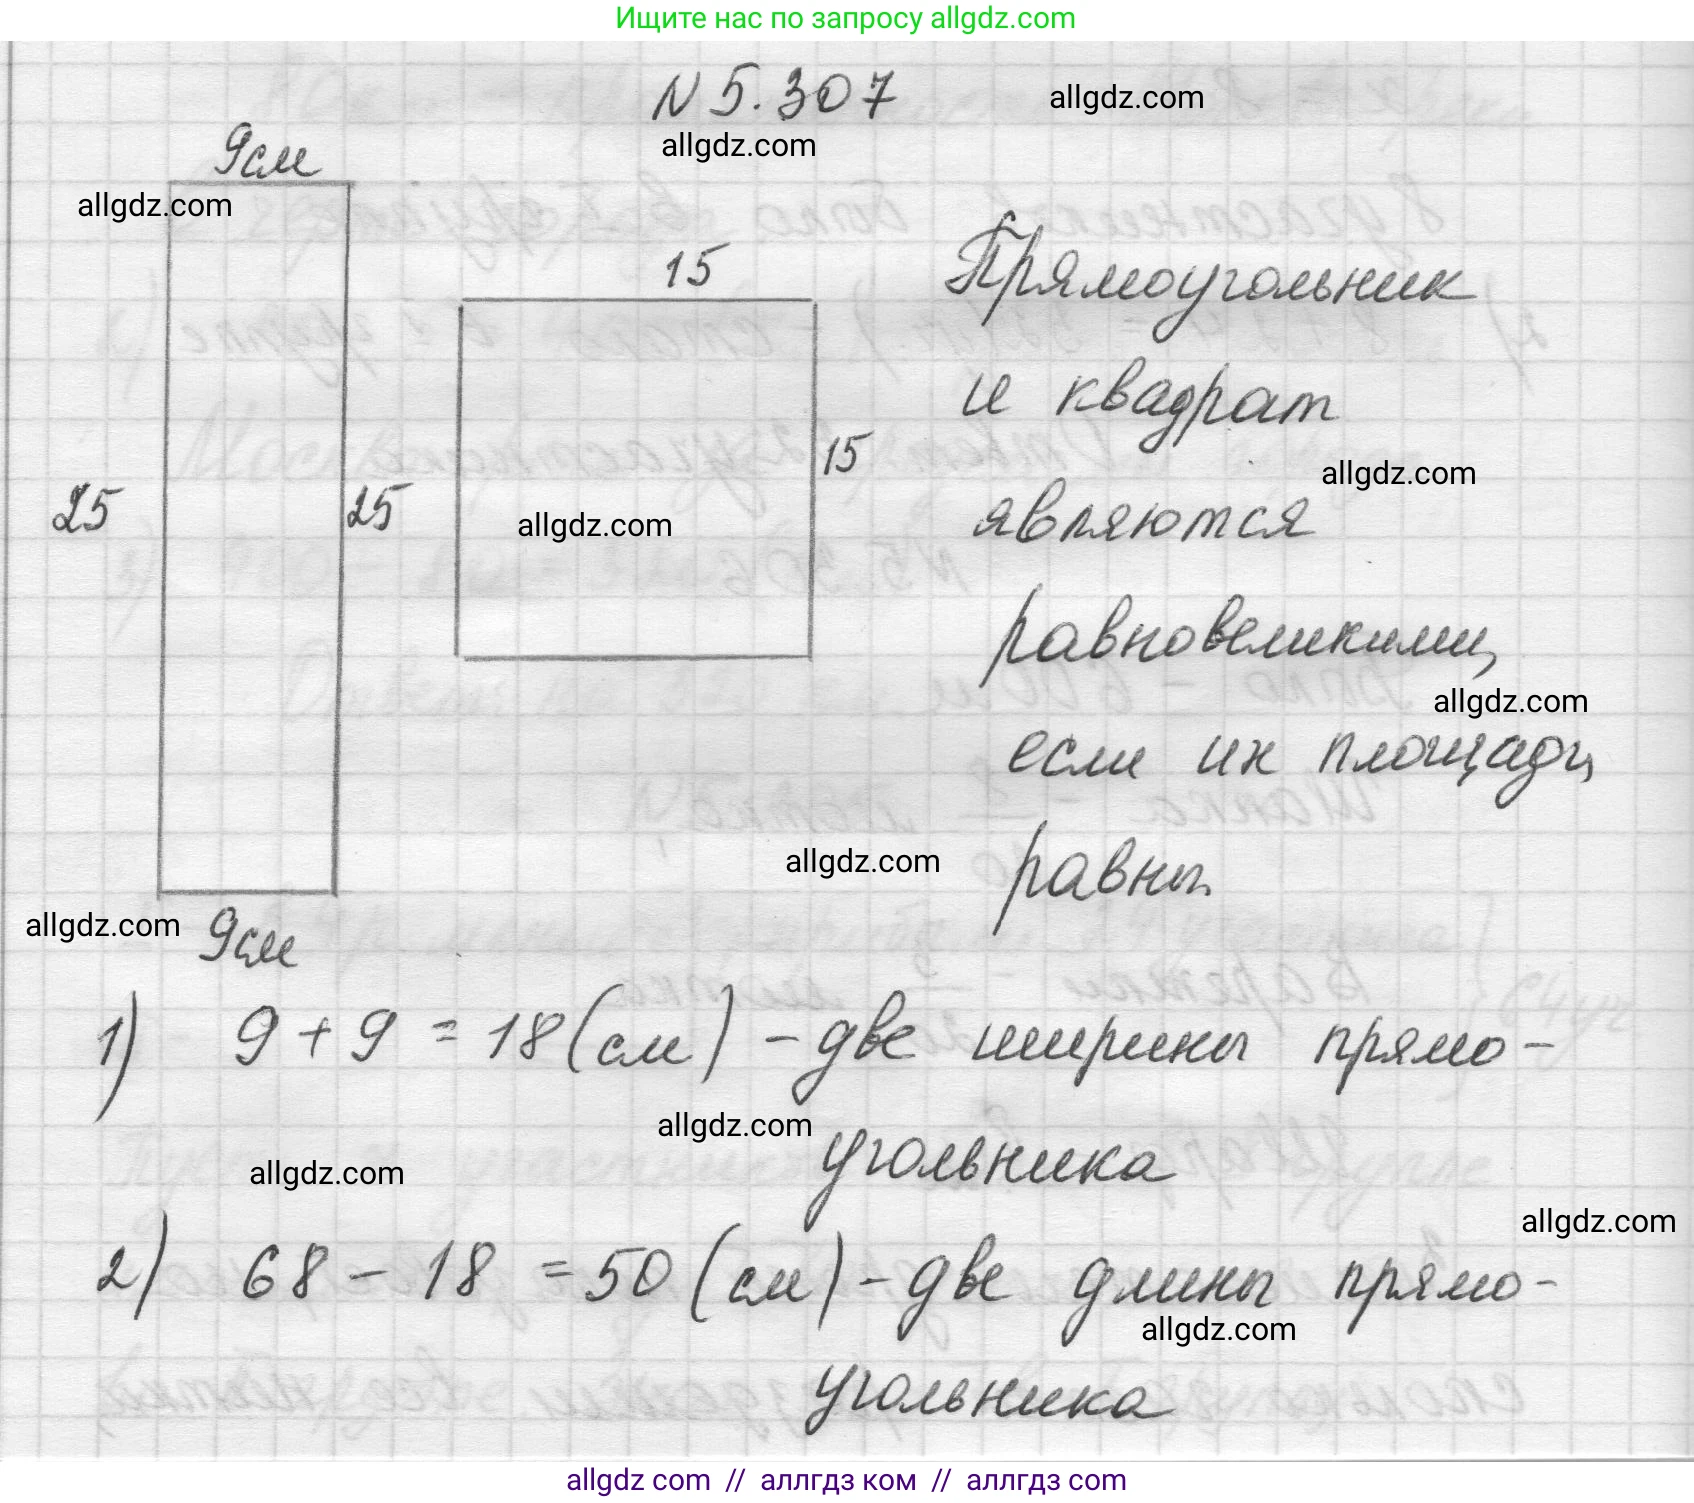 Ищите нас по запросу allgdz.com
N 5.307
allgdz.com
allgdz.com
9см
allgdz.com
15
Прямоугольник
и квадрат
15
allgdz.com
25
25
allgdz.com
являются
равновеликими,
allgdz.com
если их площади,
allgdz.com
равны.
allgdz.com
9см
1) 9 + 9 = 18 (см) - две ширины прямо-
allgdz.com
угольника
allgdz.com
allgdz.com
2) 68 - 18 = 50 (см) - две длины прямо-
allgdz.com
угольника
allgdz com // аллгдз ком // аллгдз com